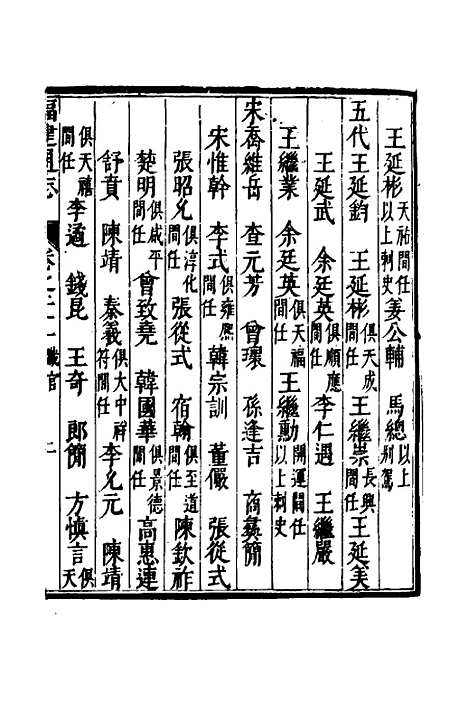 王延彬天祐間任以上刺史姜公輔 馬總以上别駕
五代王延鈞 王延彬俱天成間任王繼崇長興間任王延美
王延武 余廷英俱順應間任李仁遇 王繼嚴
王繼業 余廷英俱天福間任王繼勳開運間任以上刺史
宋喬維岳 查元芳 曾環 孫逢吉 喬嶷簡
宋惟幹 李式俱雍熙間任韓宗訓 董儼 張從式
張昭允俱淳化間任張從式 宿翰俱至道間任陳欽祚
楚明俱咸平間任曾致堯 韓國華俱景德間任高惠連
舒賁 陳靖 秦羲俱大中祥符間任李允元 陳靖
俱天禧間任李遹 錢昆 王奇 郎簡 方慎言俱天
福建通志 卷之二十一 職官 二